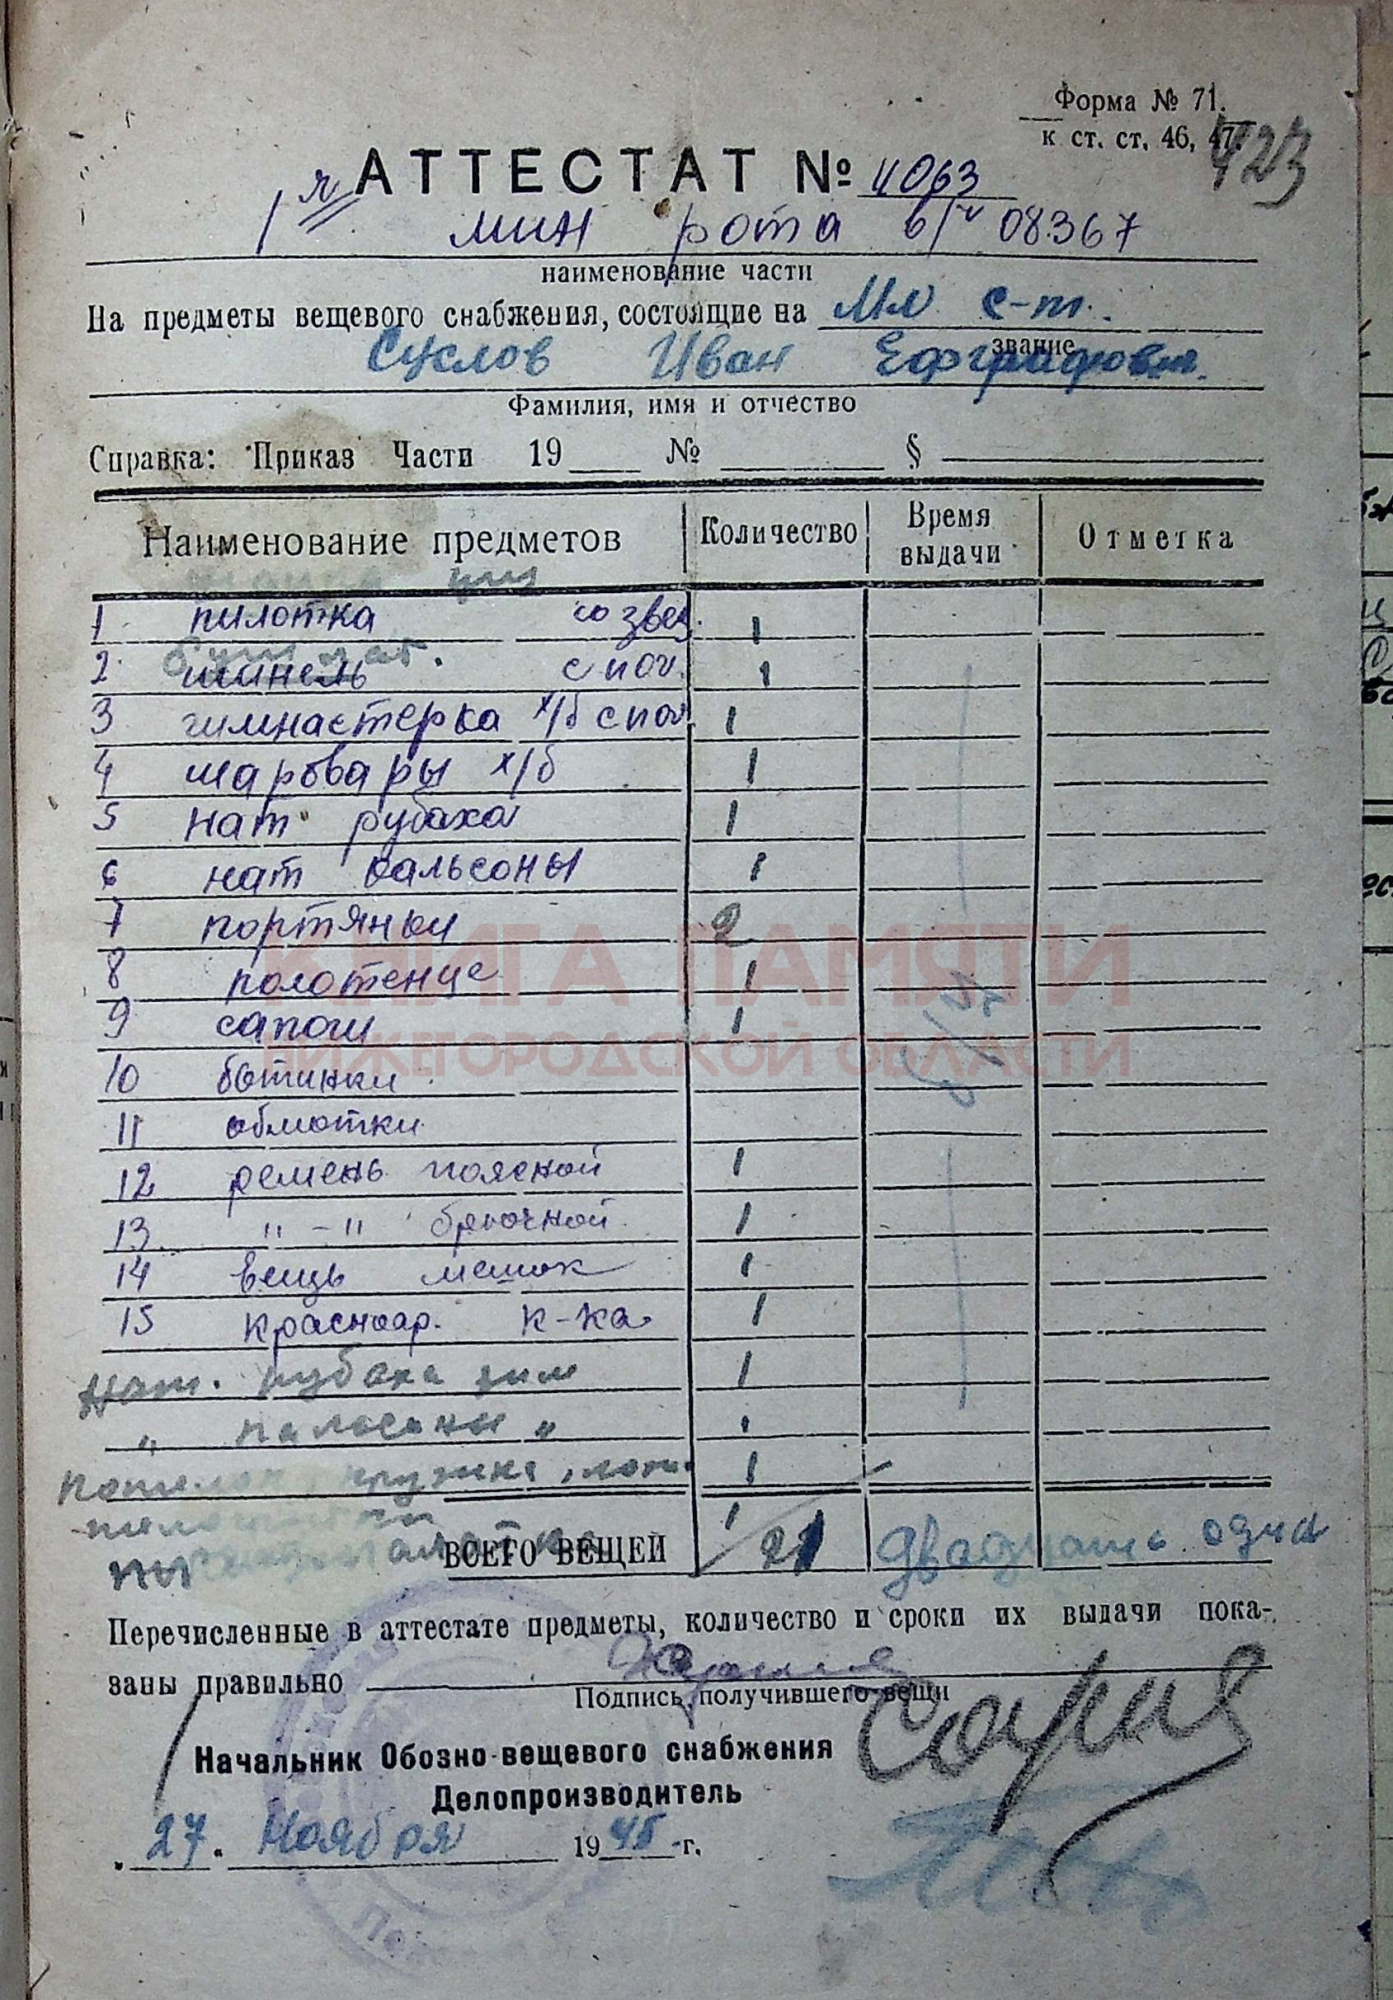 Форма № 71.
к ст. ст. 46, 47
423
АТТЕСТАТ № 4063
1я мин рота в/ч 08367
наименование части
На предметы вещевого снабжения, состоящие на Мл с-т.
звание
Суслов Иван Ефграфович.
Фамилия, имя и отчество
Справка: Приказ Части 19 № §
Наименование предметов Количество Время выдачи Отметка
1 пилотка со звез. 1
бушлат.
2 шинель с пог. 1
3 гимнастерка х/б с пог. 1
4 шаровары х/б 1
5 нат рубаха 1
6 нат кальсоны 1
7 портянки 2
8 полотенце 1
9 сапоги 1
10 ботинки
11 обмотки
12 ремень поясной 1
13 "-" брючной 1
14 вещь мешок 1
15 красноар. к-ка 1
Нат. рубаха зим 1
" кальсоны " 1
Котелок, кружка, лож. 1
1
ВСЕГО ВЕЩЕЙ 21 двадцать одна
Перечисленные в аттестате предметы, количество и сроки их выдачи пока-
заны правильно
Подпись получившего вещи
Начальник Обозно-вещевого снабжения
Делопроизводитель
"27" Ноября 1945 г.
КНИГА ПАМЯТИ
НИЖЕГОРОДСКОЙ ОБЛАСТИ